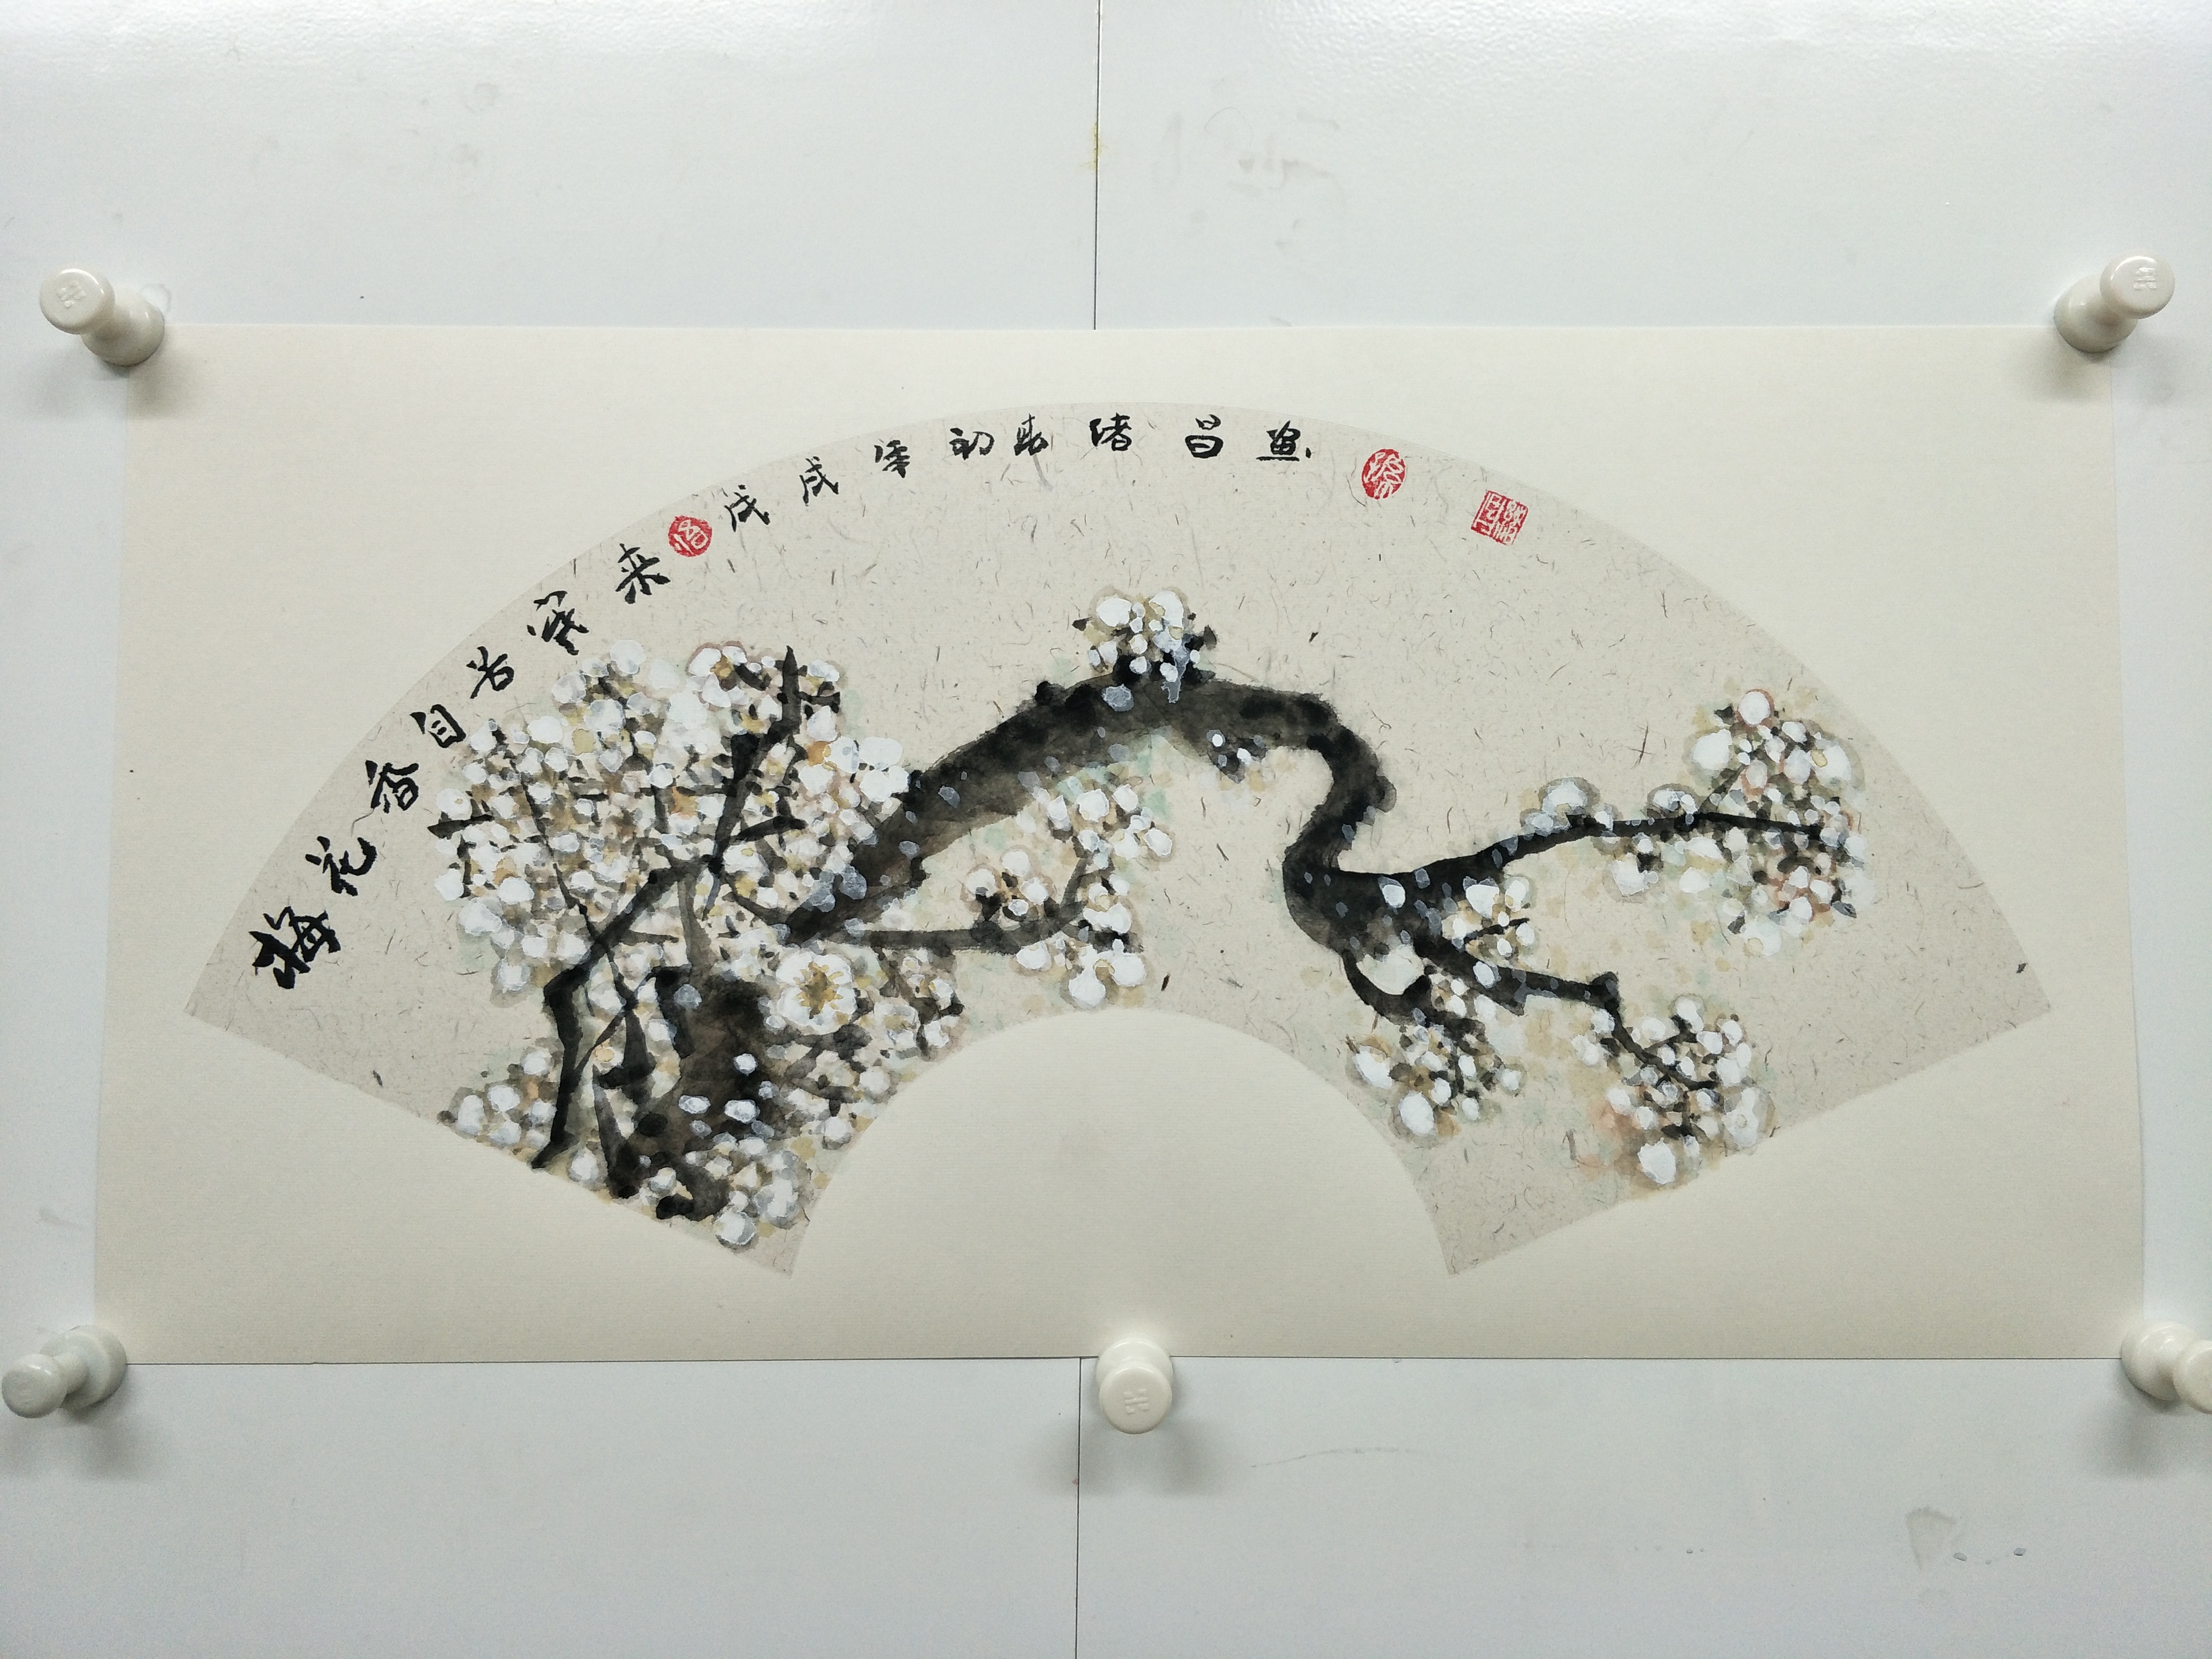 梅花香自苦寒来
戊戌年初春绪昌画